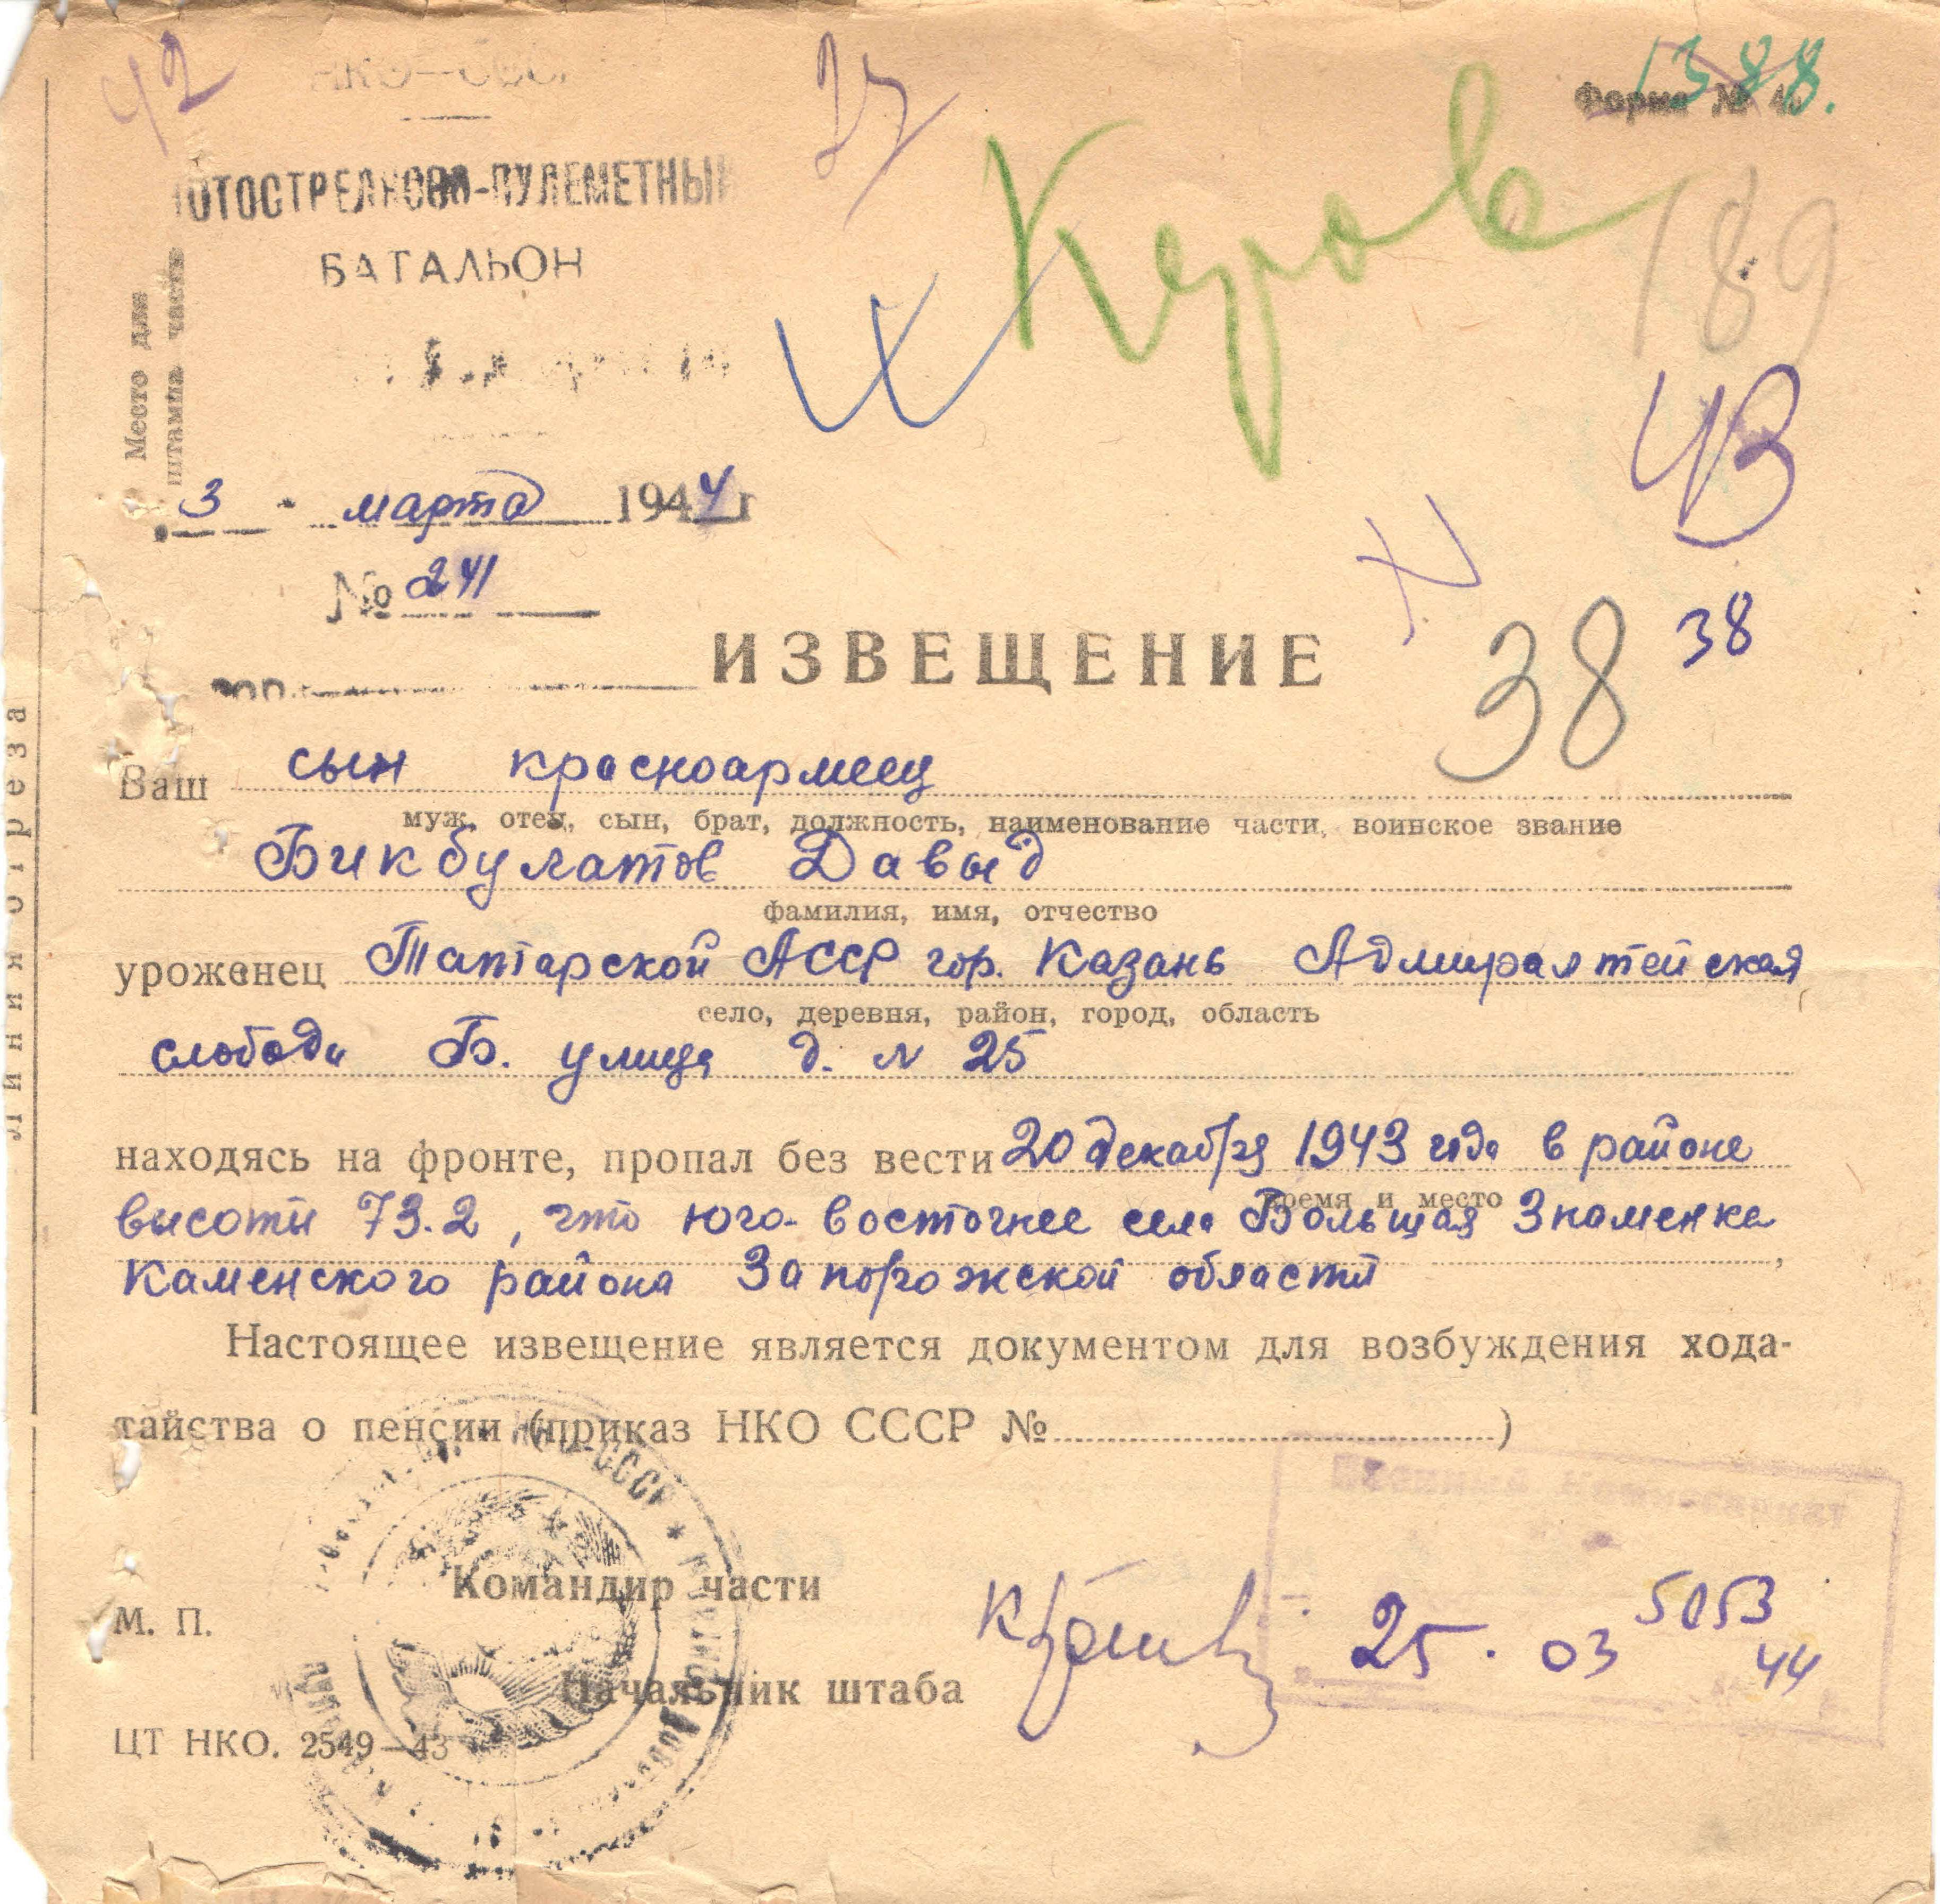 42
27
1388.
НКО—СССР
Форма № 4
МОТОСТРЕЛКОВО-ПУЛЕМЕТНЫЙ
БАТАЛЬОН
Киров
189
Место для
штампа части
43
3 марта 1944 г
№ 241
38
38
ИЗВЕЩЕНИЕ
гор.
Ваш сын красноармеец
муж, отец, сын, брат, должность, наименование части, воинское звание
Бикбулатов Давыд
фамилия, имя, отчество
уроженец Татарской АССР гор. Казань Адмиралтейская
село, деревня, район, город, область
слобода Б. улица д. N 25
находясь на фронте, пропал без вести 20 декабря 1943 года в районе
время и место
высоты 73.2, что юго-восточнее села Большая Знаменка
Каменского района Запорожской области
Настоящее извещение является документом для возбуждения хода-
тайства о пенсии (приказ НКО СССР № )
Военный Комиссариат
Командир части
М. П.
5053
25. 03 44
Начальник штаба
ЦТ НКО. 2549—43
линия отреза